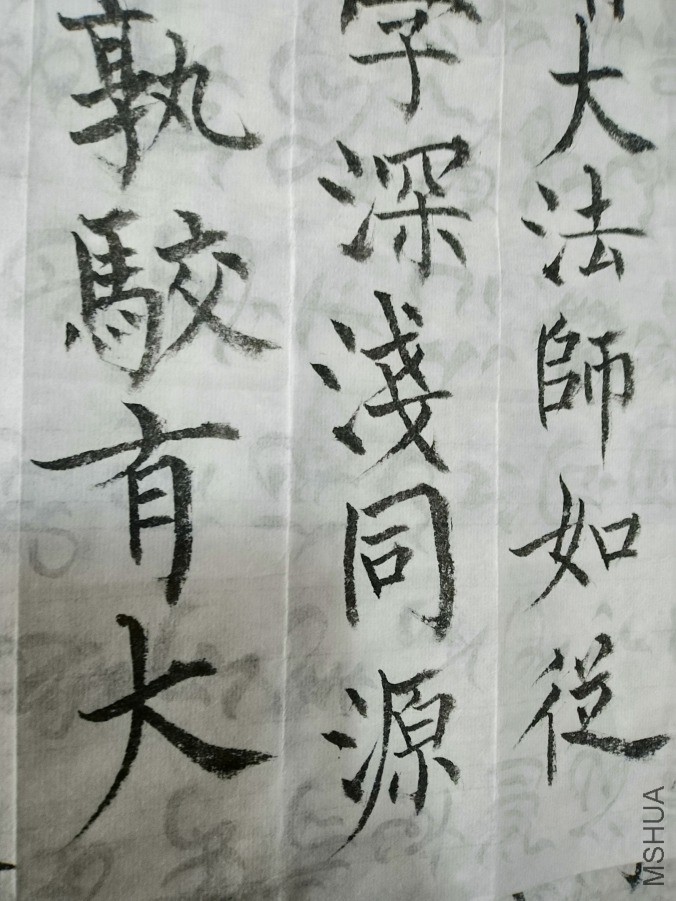 大法師如從
字深淺同源
孰駮有大
MSHUA